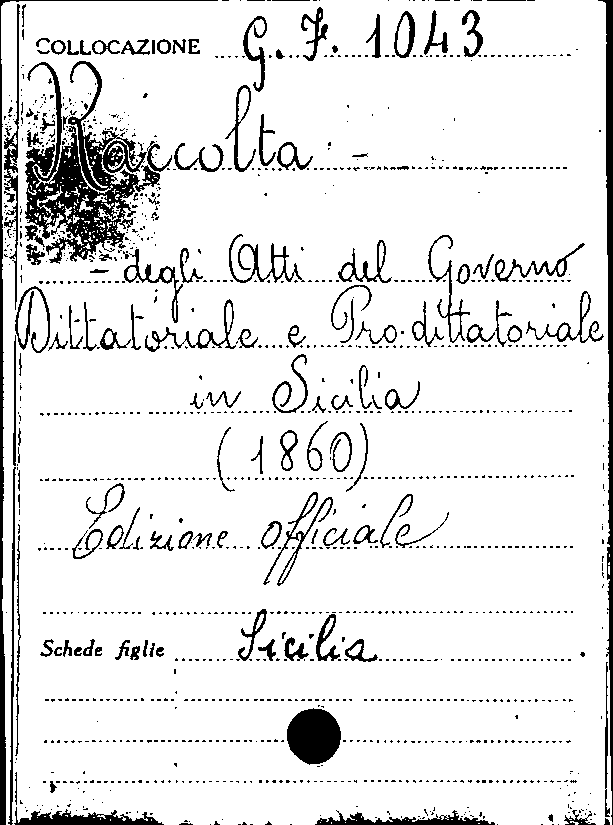 COLLOCAZIONE G. F. 1043
Raccolta -
- degli Atti del Governo
Dittatoriale e Pro-dittatoriale
in Sicilia
(1860)
Edizione officiale
Schede figlie Sicilia